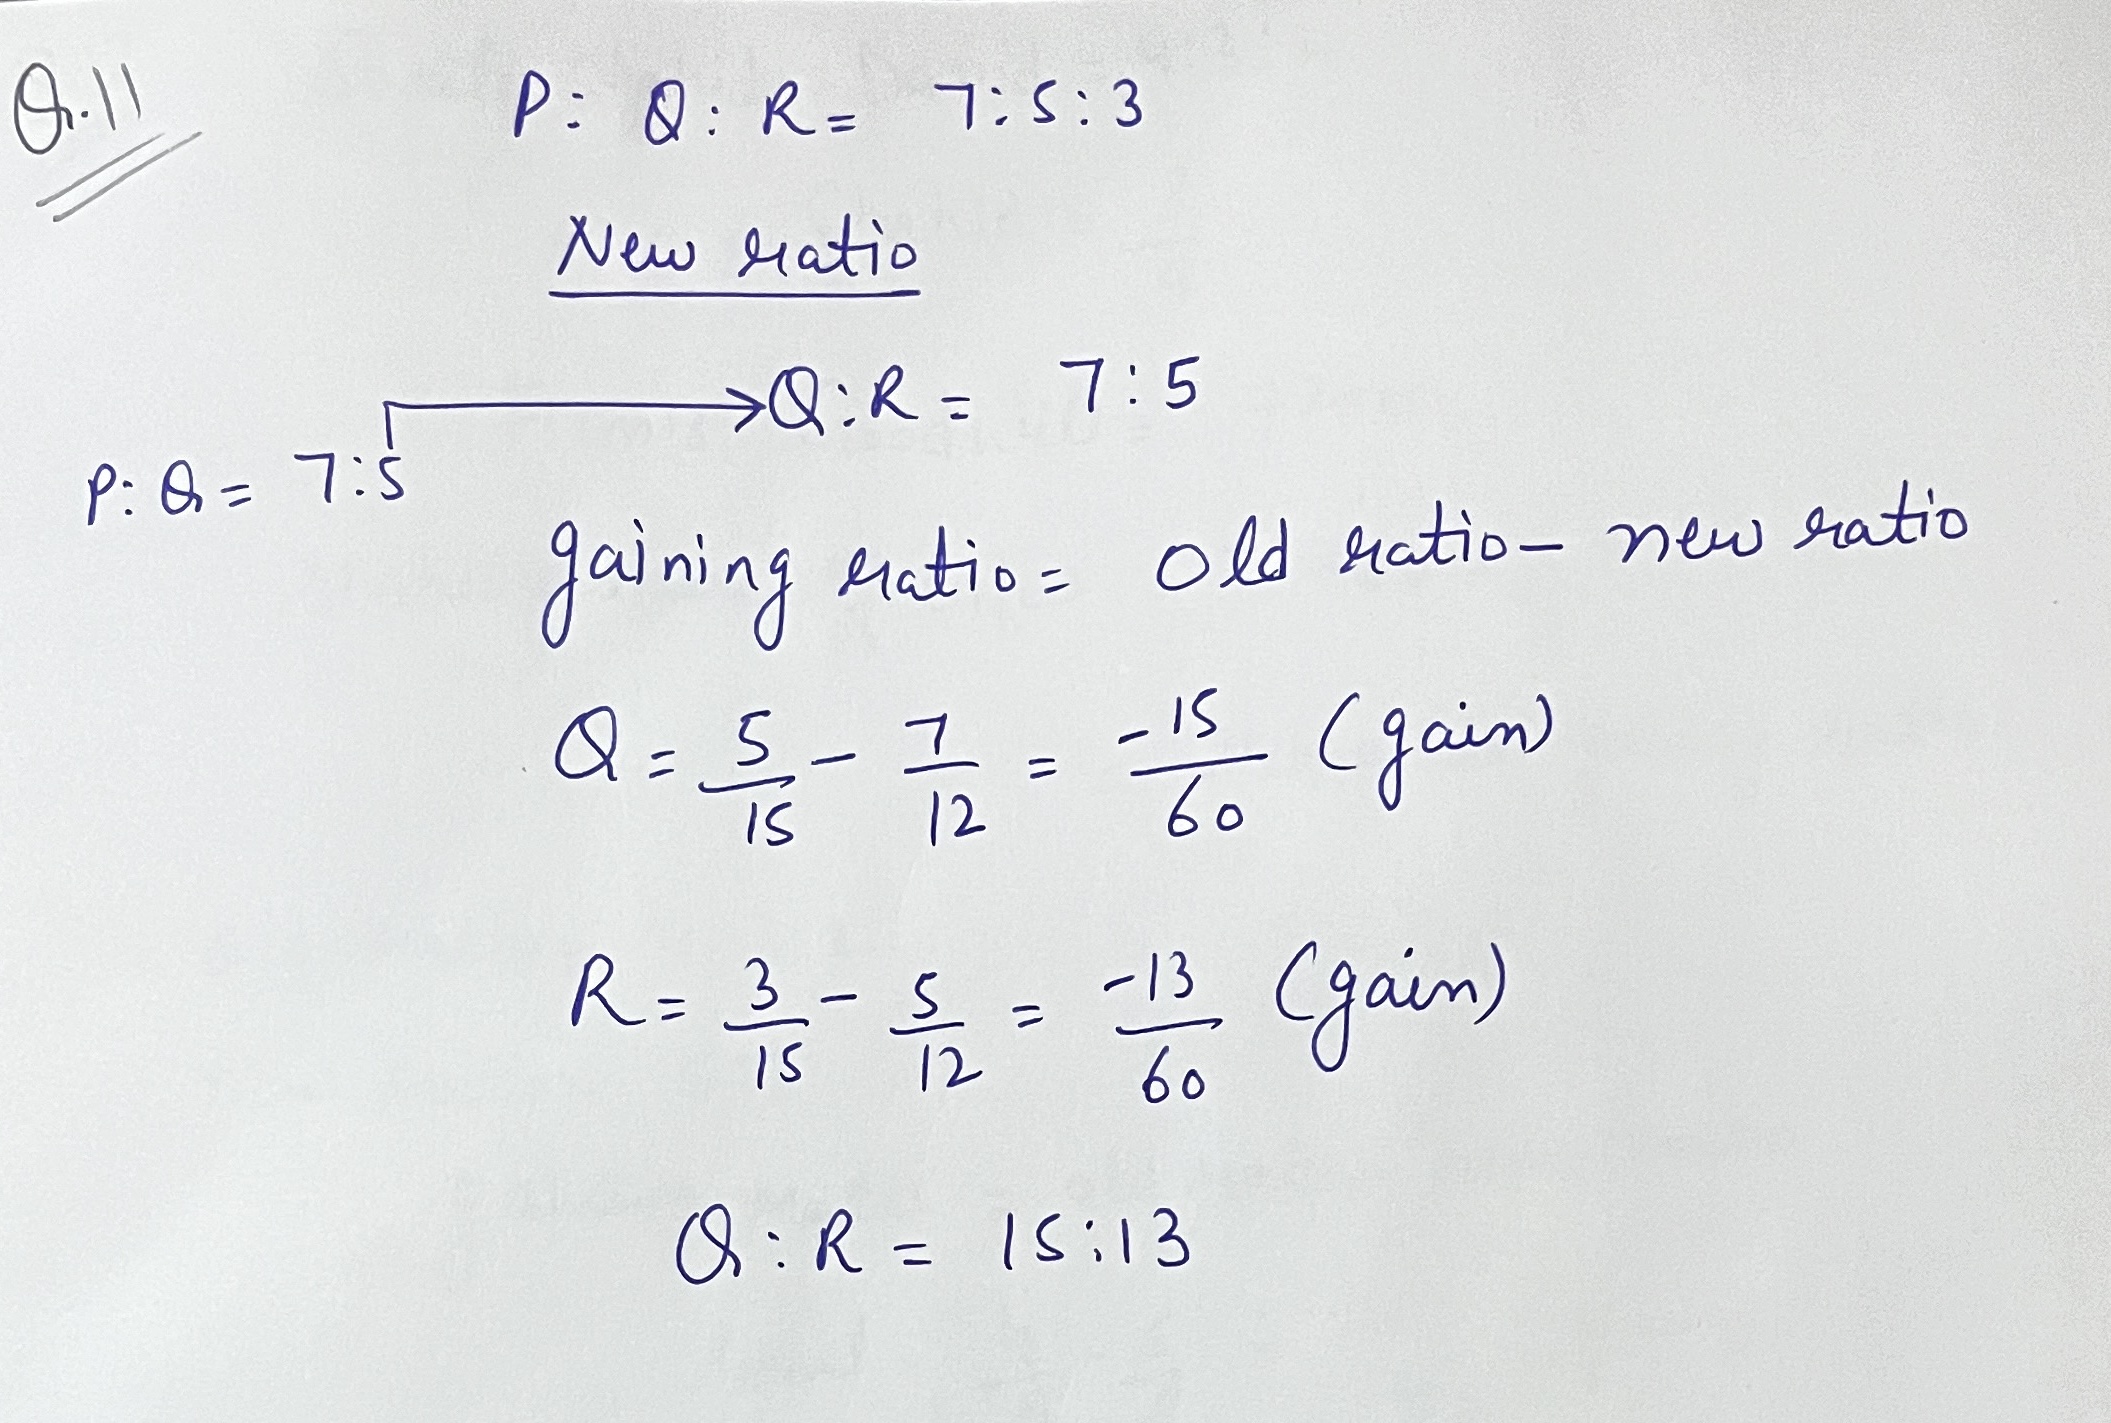 Q.11
P: Q: R= 7:5:3
New ratio
Q:R= 7:5
P:Q= 7:5
gaining ratio= old ratio- new ratio
Q= 5/15 - 7/12 = -15/60 (gain)
R= 3/15 - 5/12 = -13/60 (gain)
Q:R= 15:13